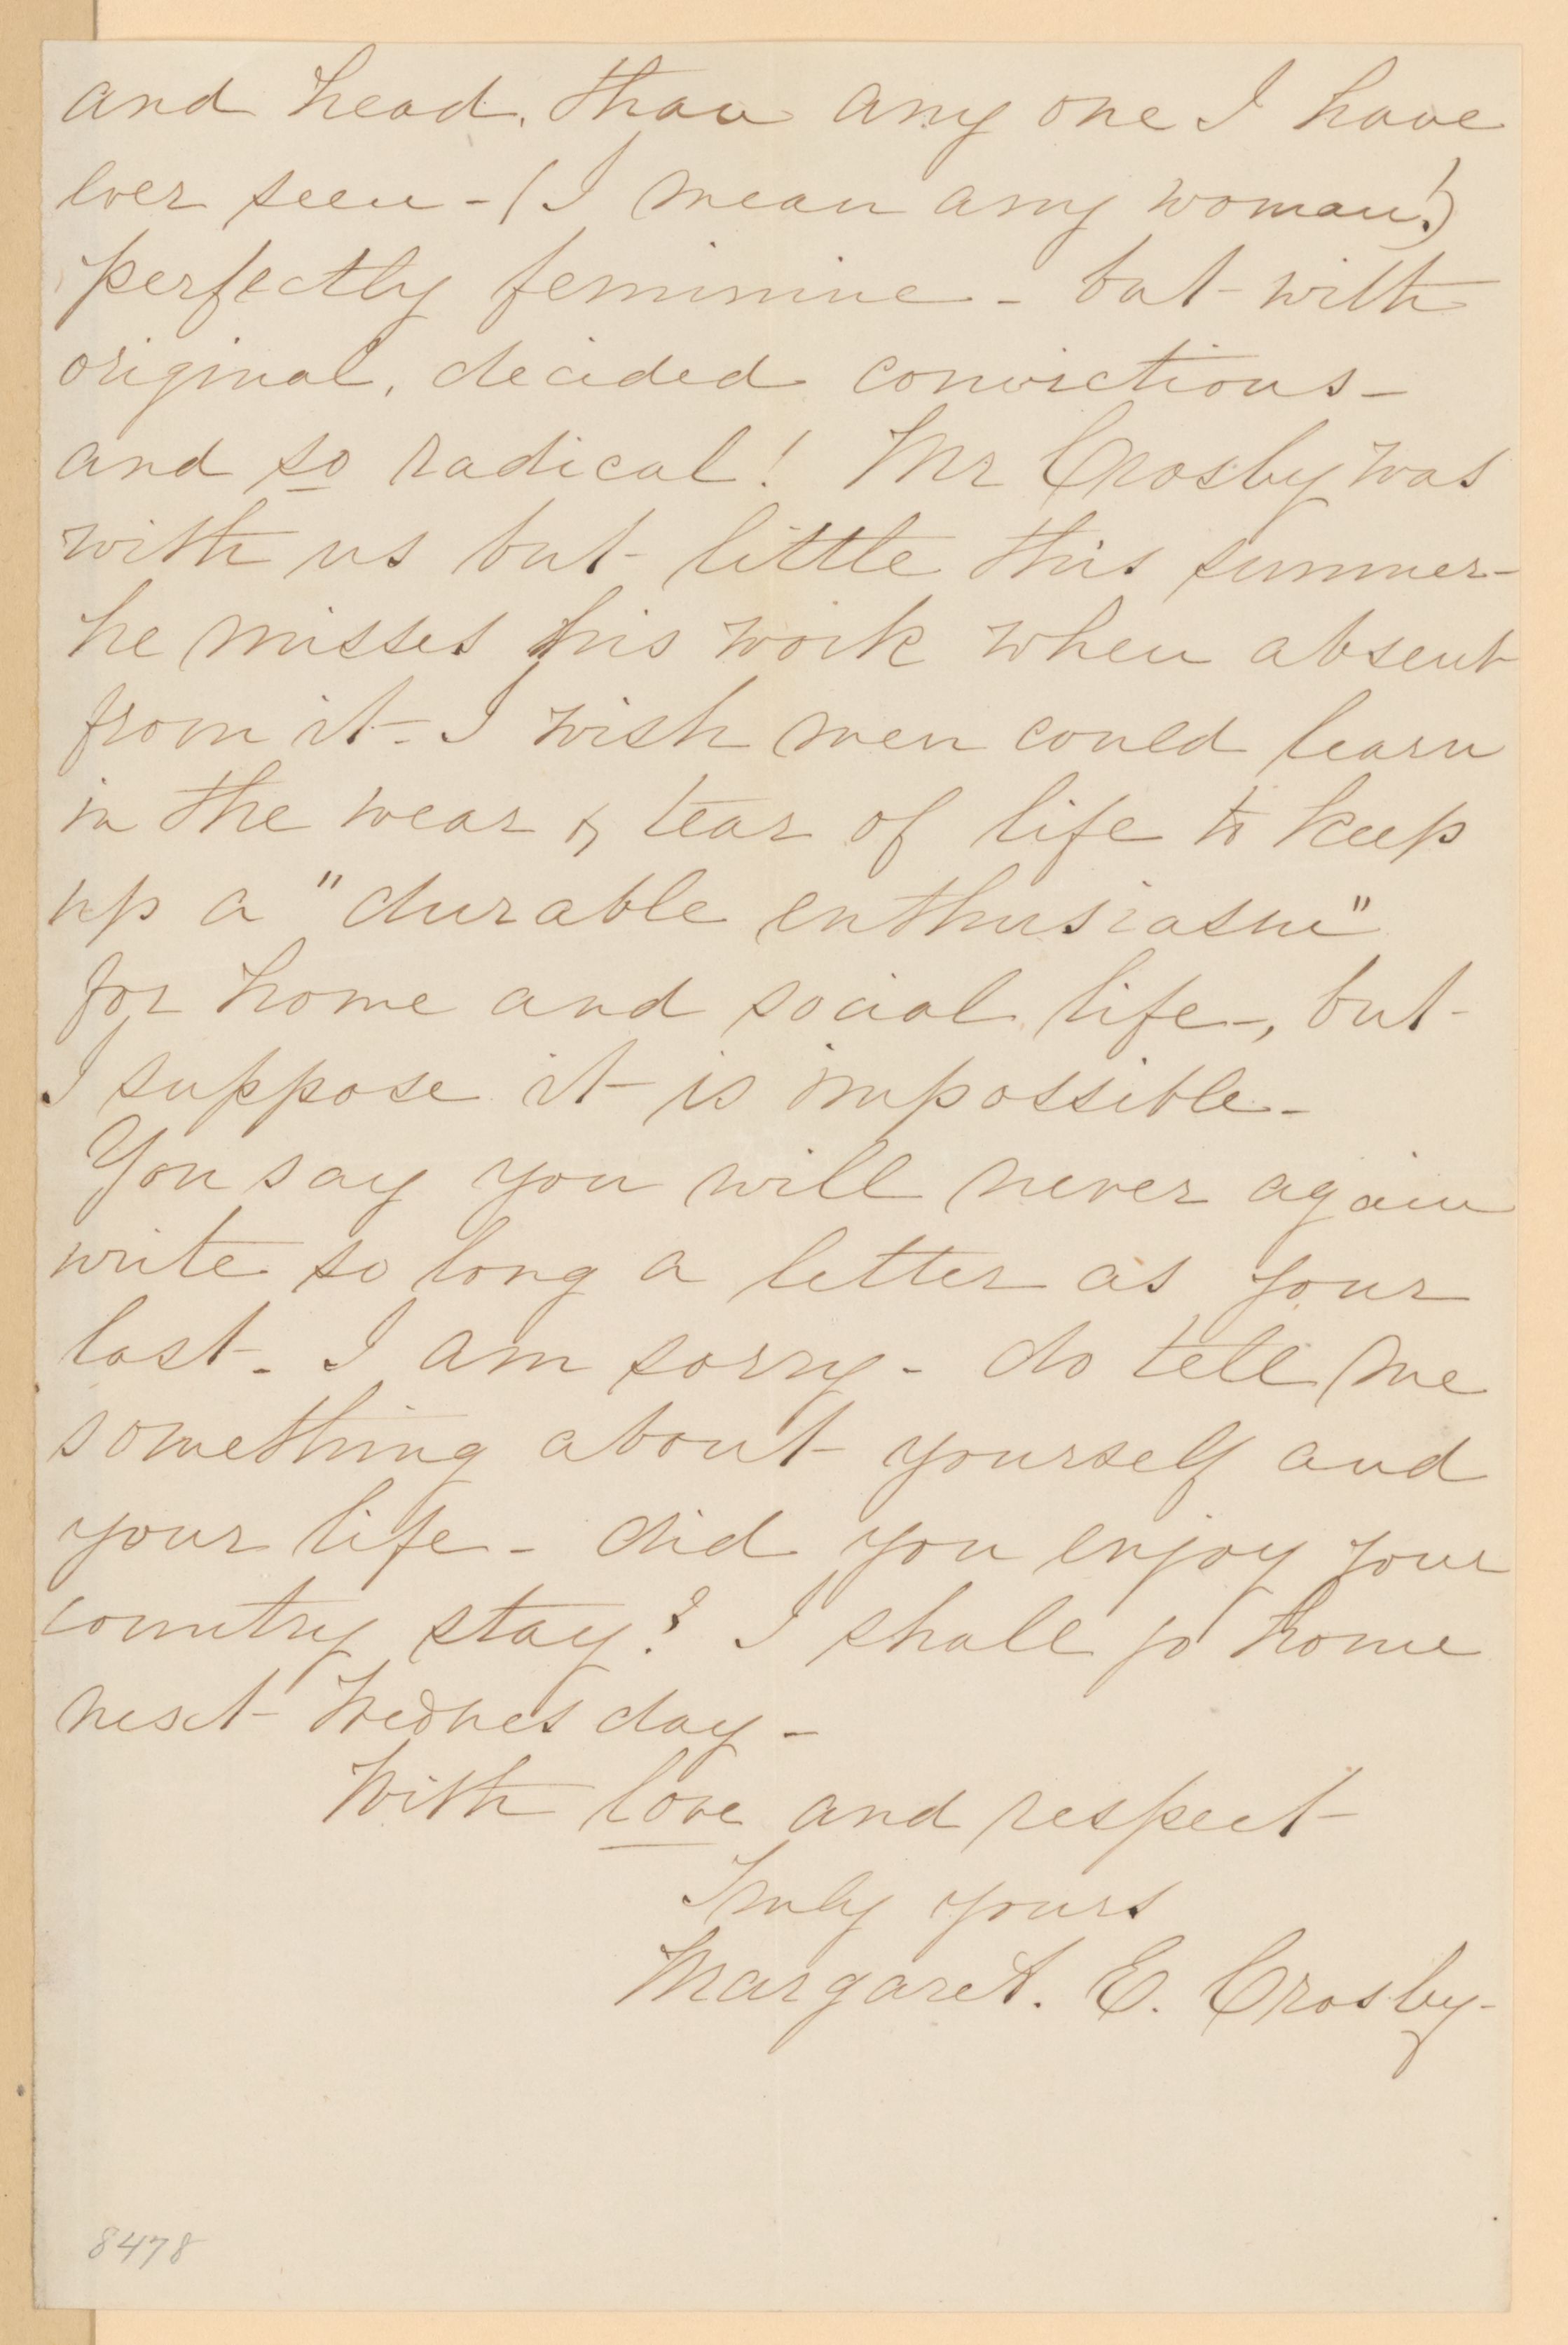 and head, than any one I have
ever seen - (I mean any woman!)
perfectly feminine - but with
original, decided convictions -
and so radical! Mr Crosby was
with us but little this summer -
he misses his work when absent
from it - I wish men could learn
in the wear & tear of life to keep
up a "durable enthusiasm"
for home and social life -, but -
I suppose it is impossible -
You say you will never again
write so long a letter as your
last - I am sorry - do tell me
something about yourself and
your life - did you enjoy your
country stay? I shall go home
next Wednesday -
With love and respect
Truly yours
Margaret. E. Crosby -
8478